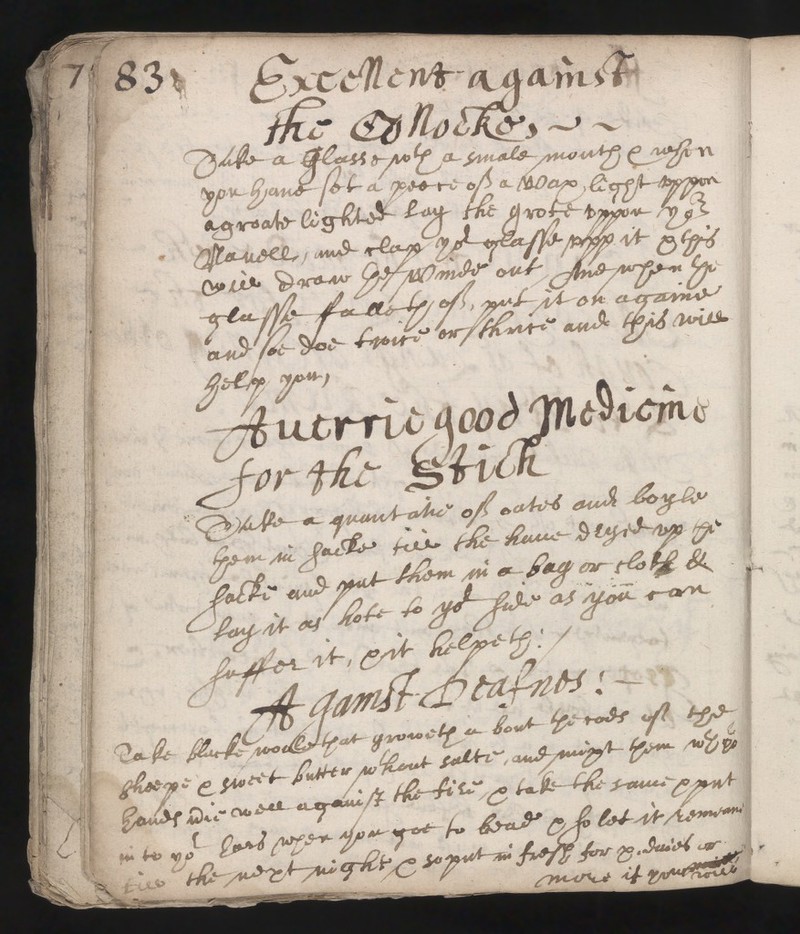 7 83
Excellent against
the Collocke,
Take a Glasse wth a smale mouth & when
you have set a peece off a Wax light uppon
a groate lighted lay the grote uppon yor
Navell, and clap yor glasse uppon it & this
will draw the Winde out And when the
glasse falleth off, put it on againe
and soe doe twice or thrice and this will
help you,
A verrie good Medicine
for the Stich
Take a quantatie off oates and boyle
them in sacke till the have dryed up the
sacke and put them in a bag or cloth &
lay it as hote to yor side as you can
suffer it, & it helpeth:/
Against Deafnes:
Take blacke woole that groweth a bout the cods off the
sheepe & sweet butter wthout salte, and mixt them wth yor
hands well against the fire, & take the same & put
in to yor Ears when you goe to bead & so let it remeane
till the next night & so put in fresh for x daies or
more if you will